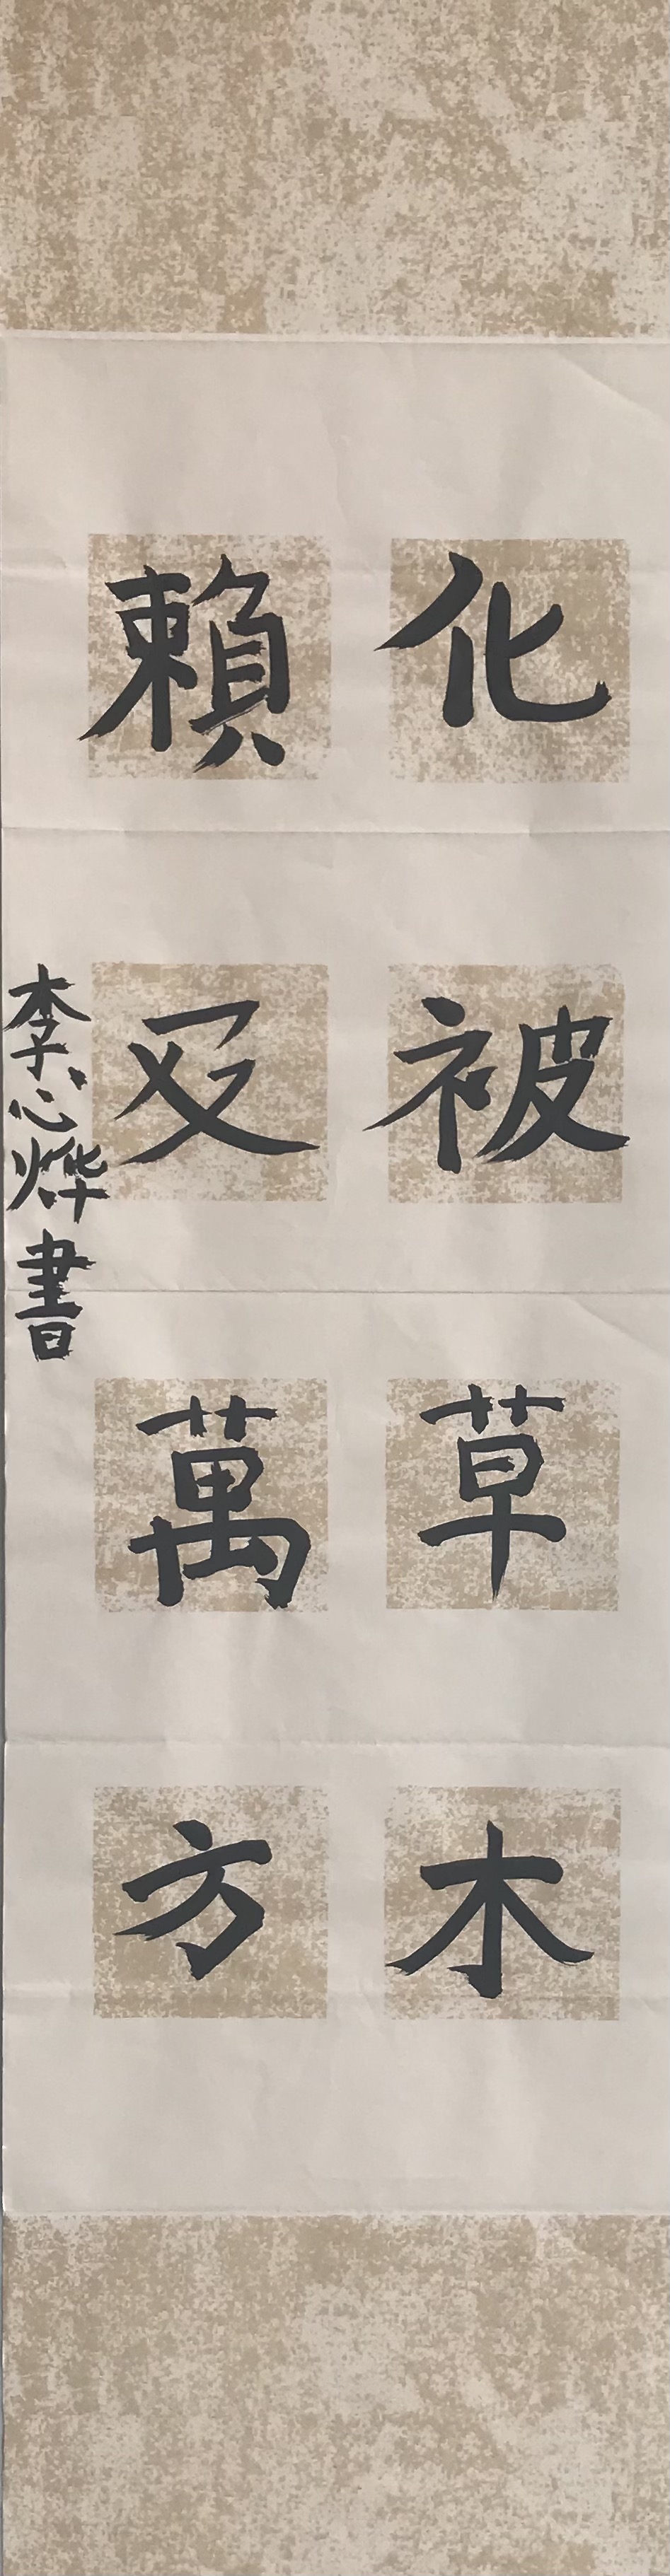 化被草木
賴及萬方
李心燁書